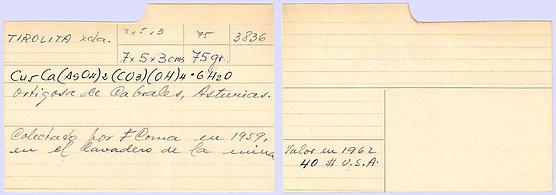 TIROLITA xda. 7x5x3 75 3836
7x5x3cms 75gr.
Cu5Ca(AsOH)2(CO3)(OH)4•6H2O
Ortigosa de Cabrales, Asturias.
Colectado por F Coma en 1959,
en el lavadero de la mina
Valor en 1962
40 $ U.S.A.